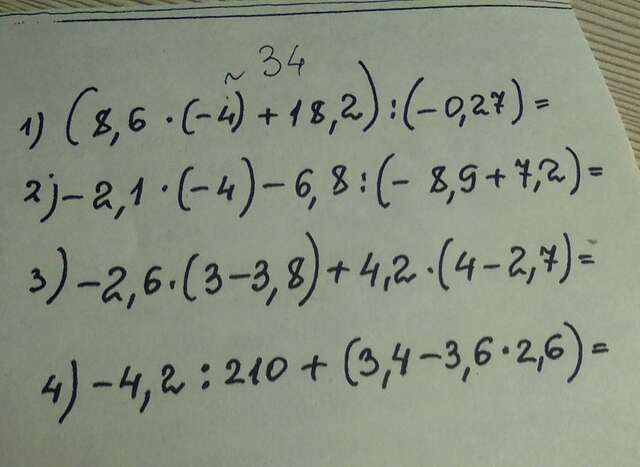 ~ 34
1) (8,6 · (-4) + 18,2) : (-0,27) =
2) -2,1 · (-4) - 6,8 : (- 8,9 + 7,2) =
3) -2,6 · (3 - 3,8) + 4,2 · (4 - 2,7) =
4) -4,2 : 210 + (3,4 - 3,6 · 2,6) =